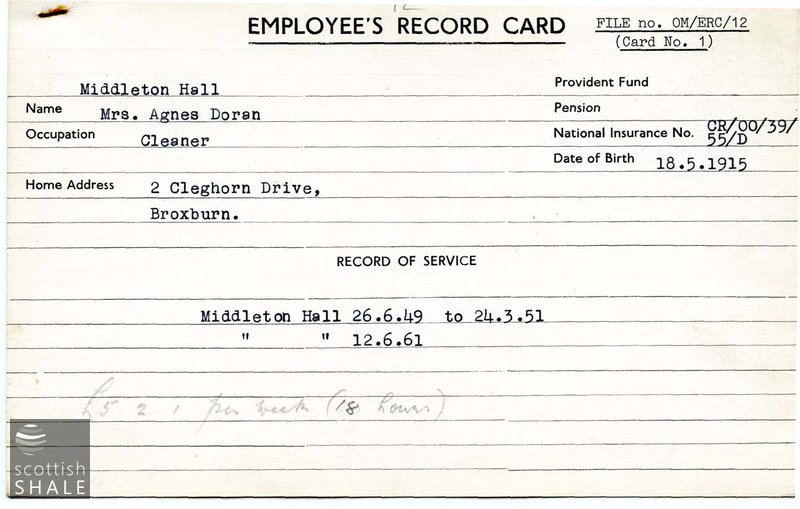 EMPLOYEE'S RECORD CARD
FILE no. OM/ERC/12
(Card No. 1)
Middleton Hall
Provident Fund
Name Mrs. Agnes Doran
Pension
Occupation Cleaner
National Insurance No. CR/00/39/
55/D
Date of Birth 18.5.1915
Home Address 2 Cleghorn Drive,
Broxburn.
RECORD OF SERVICE
Middleton Hall 26.6.49 to 24.3.51
" " 12.6.61
£5. 2. 1 per week (18 hours)
scottish
SHALE